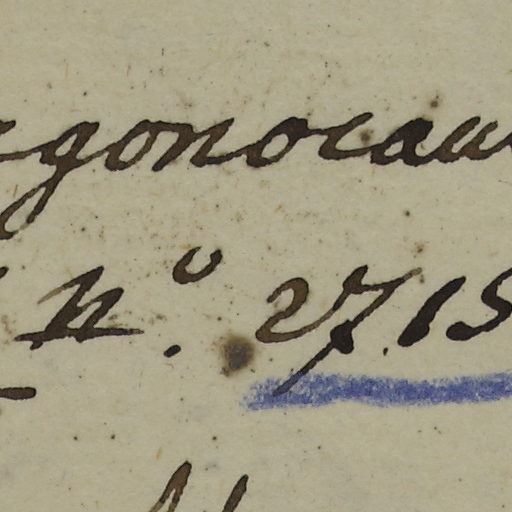 gonocau
N.º 27.15